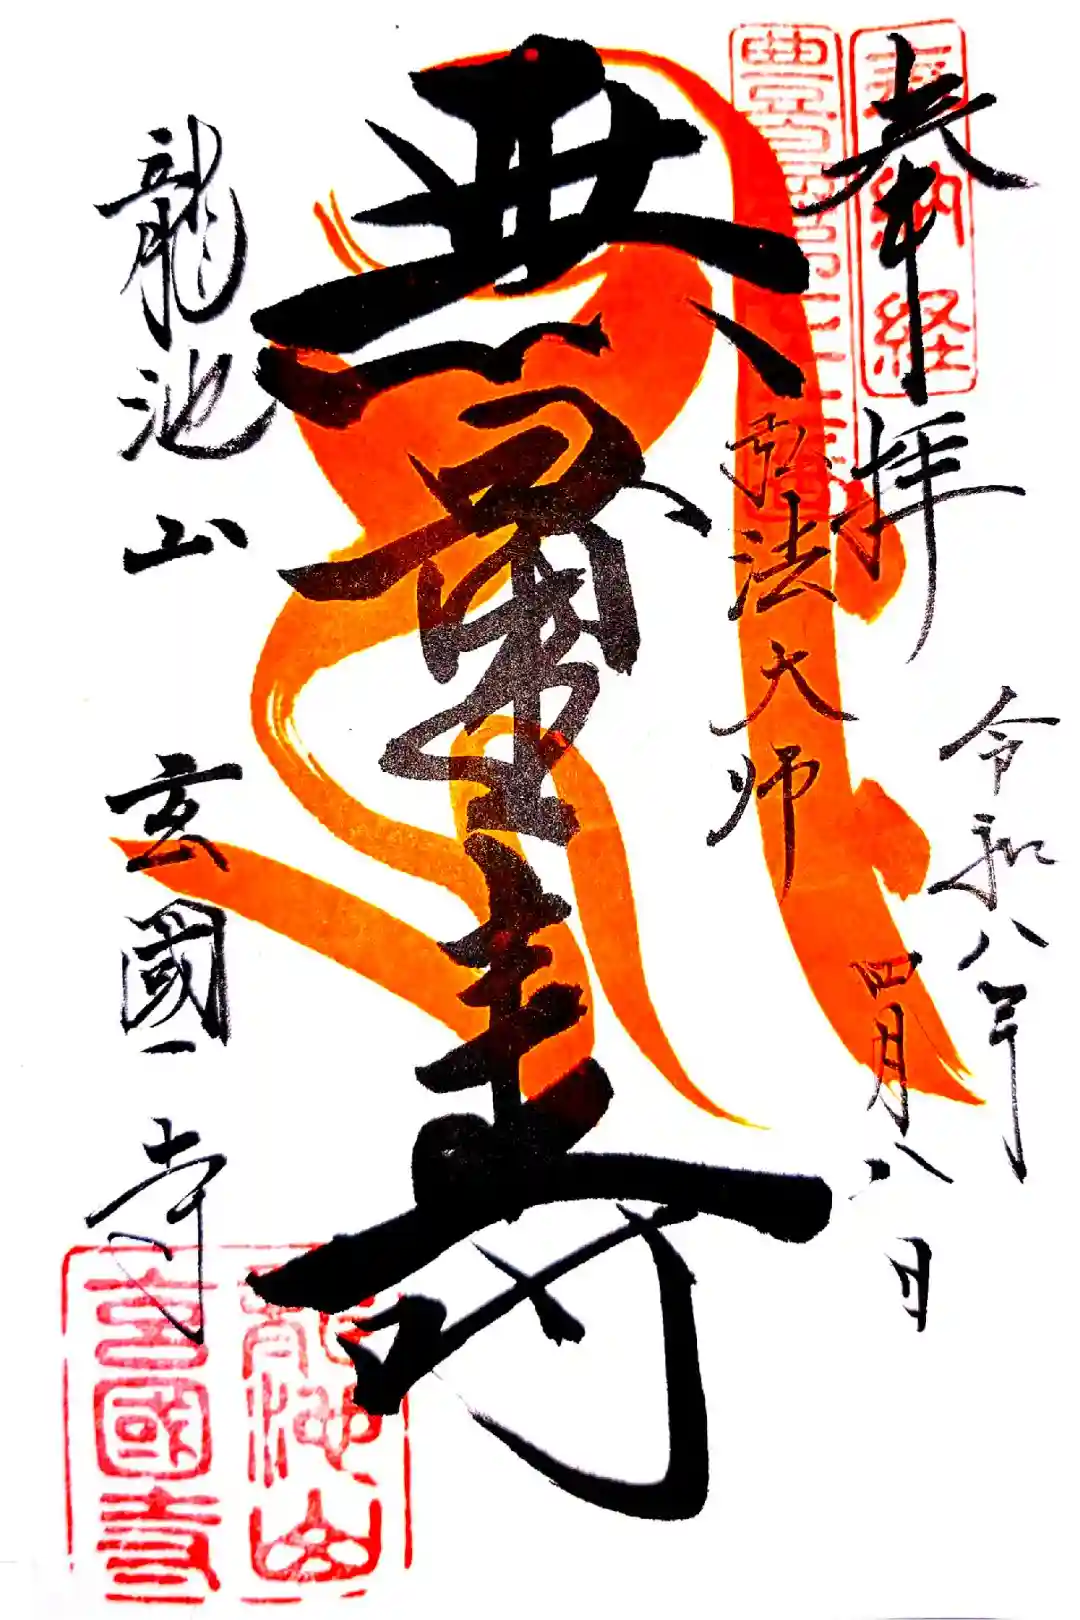 奉拝
令和八年
四月八日
弘法大師
無量壽
龍池山
玄國寺
奉納経
龍池山
玄國寺